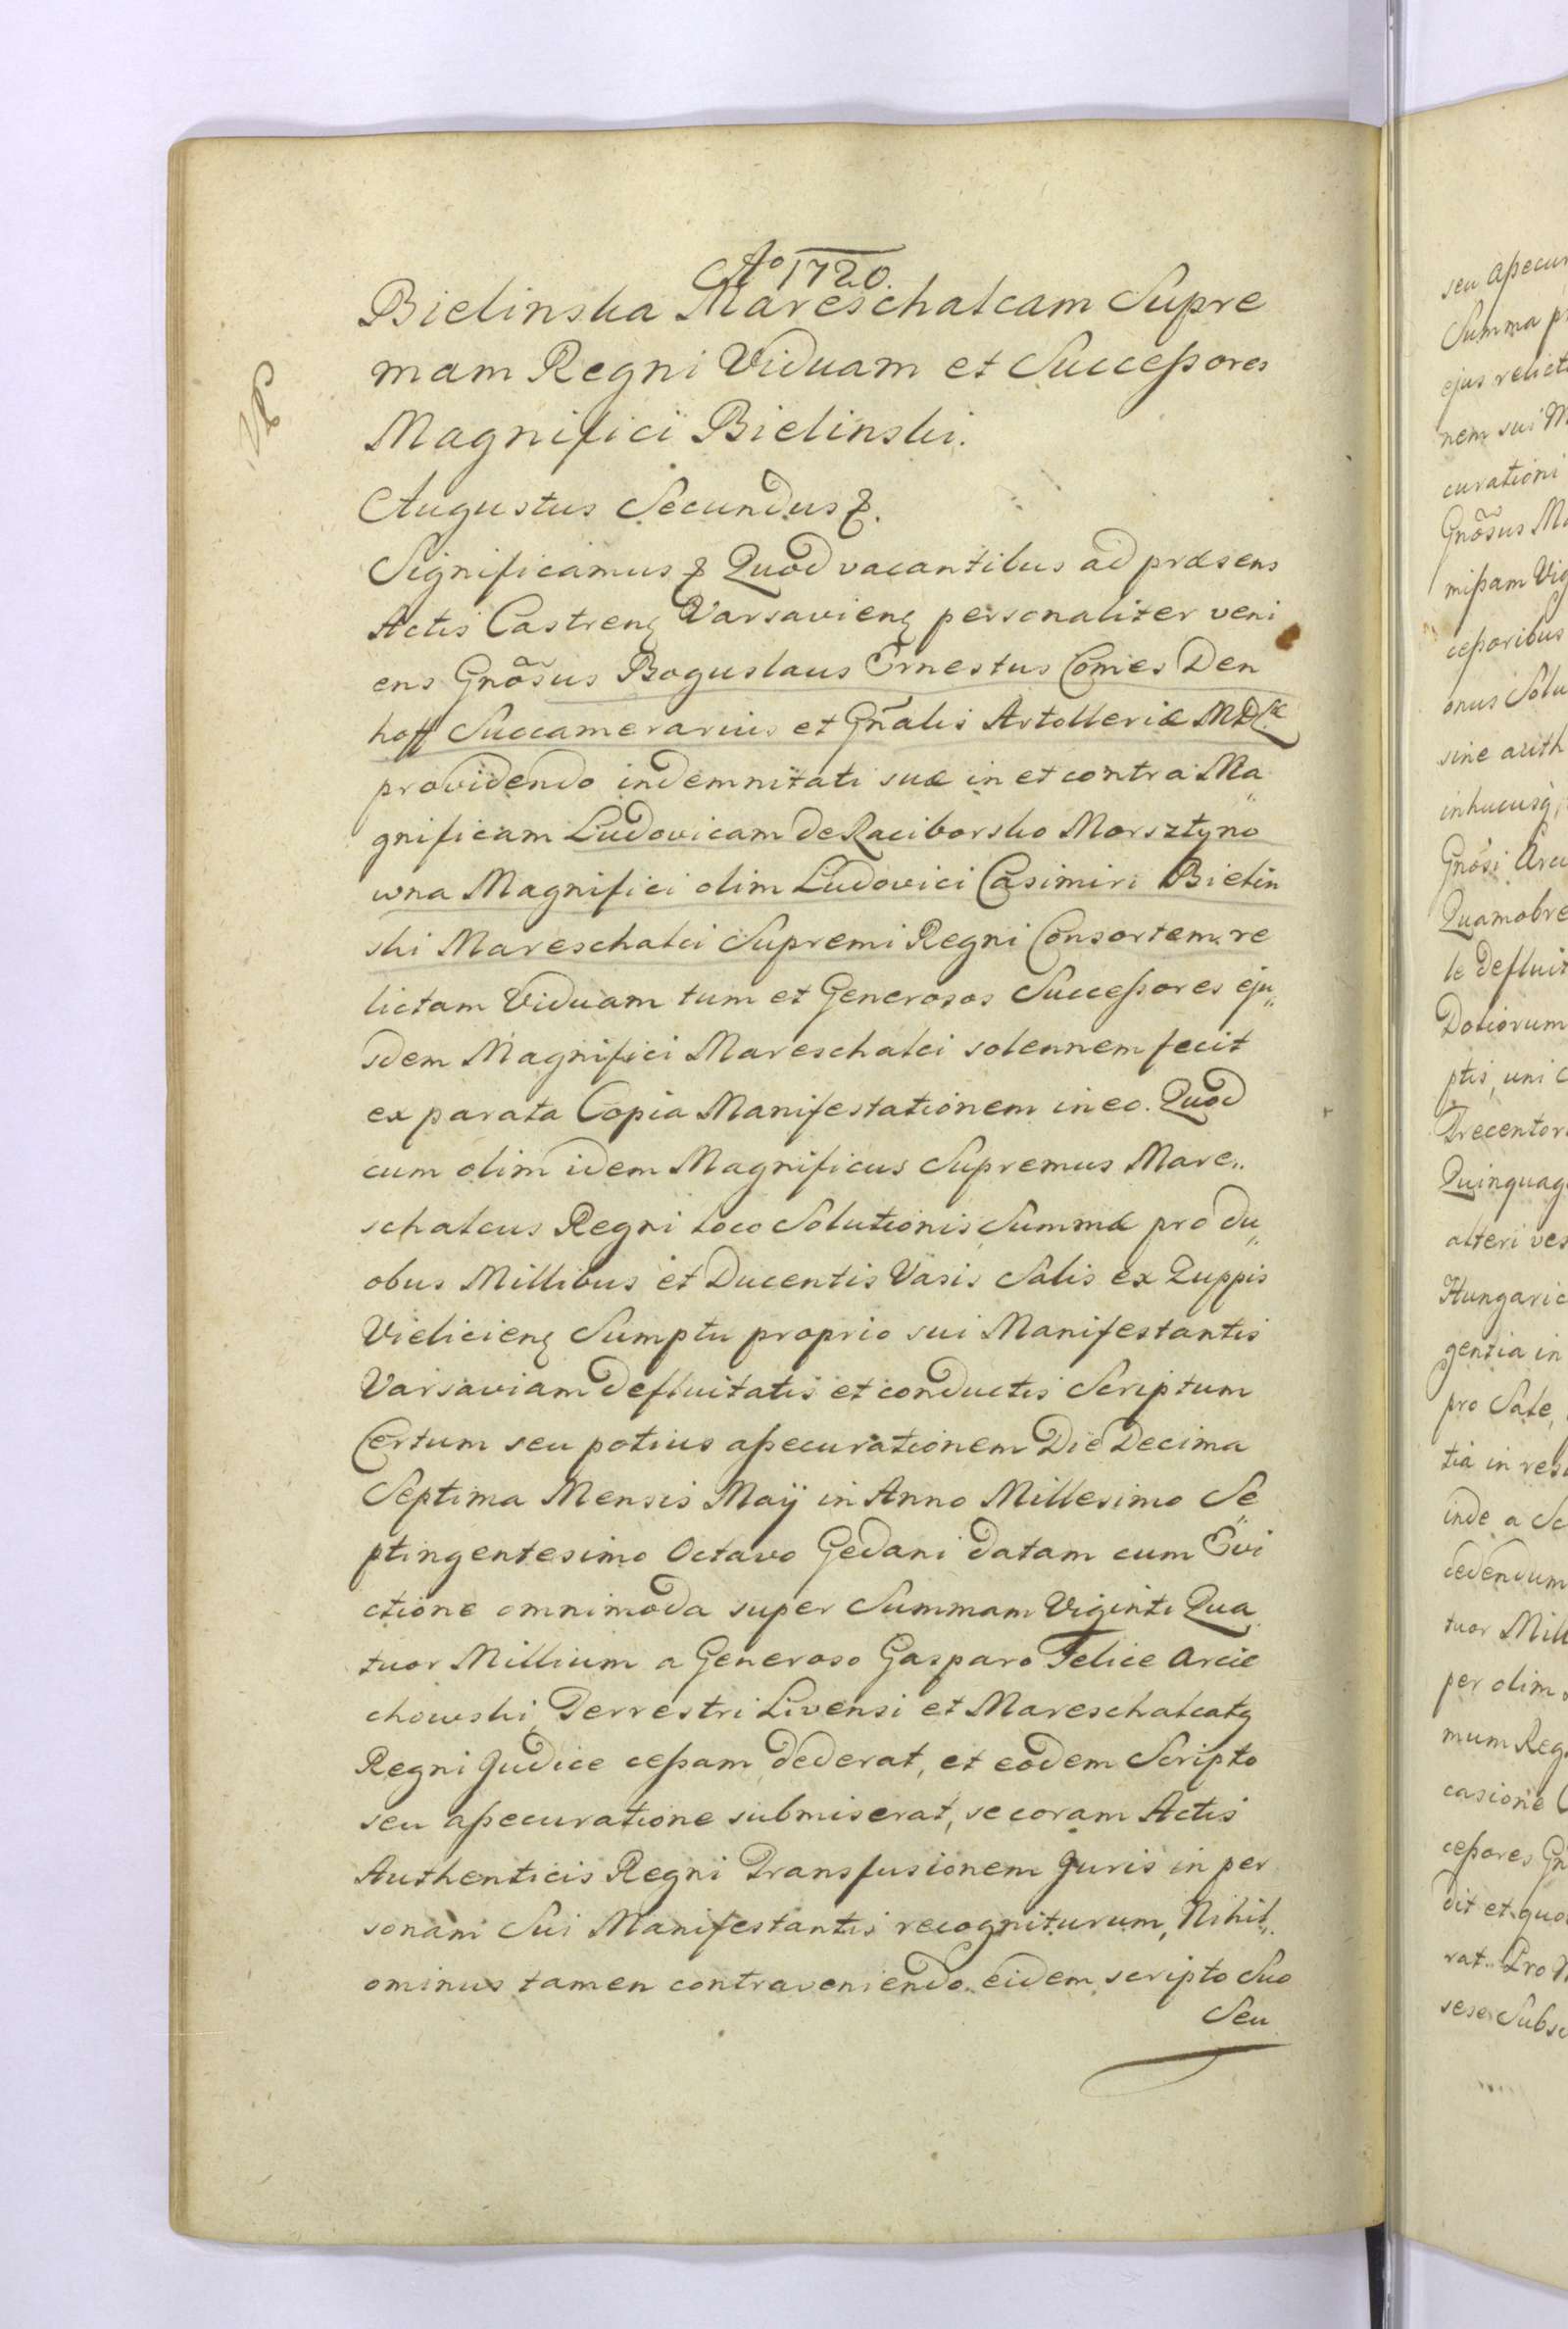 Aº 1720.
Bielinska Mareschalcam Supre
mam Regni Viduam et Succeßores
Magnifici Bielinski.
Augustus Secundus &.
Significamus & Quod vacantibus ad præsens
Actis Castrenẽ Varsavienẽ personaliter veni
ens Gnõsus Boguslaus Ernestus Comes Den
hoff Succamerarius et Gñalis Artolleriæ MDL
providendo indemnitati suæ in et contra Ma
gnificam Ludovicam de Raciborsko Morsztyno
wna Magnifici olim Ludovici Casimiri Bielin
ski Mareschalci Supremi Regni Consortem re
lictam Viduam tum et Generosos Succeßores eju„
sdem Magnifici Mareschalci solennem fecit
ex parata Copia Manifestationem in eo. Quod
cum olim idem Magnificus Supremus Mare„
schalcus Regni loco Solutionis Summæ pro du„
obus Millibus et Ducentis Vasis Salis ex Zuppis
Vielicienẽ Sumptu proprio sui Manifestantis
Varsaviam defluitatis et conductis Scriptum
Certum seu potius aßecurationem Die Decima
Septima Mensis Maÿ in Anno Millesimo Se
ptingentesimo Octavo Gedani datam cum Evi
ctione omnimoda super Summam Viginti Qua
tuor Millium a Generoso Gasparo Felice Arcie
chowski Terrestri Livensi et Mareschalcatẽ
Regni Judice ceßam dederat, et eodem Scripto
seu aßecuratione submiserat, se coram Actis
Authenticis Regni Transfusionem Juris in per
sonam Sui Manifestantis recogniturum, Nihil„
ominus tamen contraveniendo eidem scripto Suo
Seu
seu aßecur
Summa
ejus relict
nem sui
curationi
Gnõsus
mißam
ceßoribus
onus Solu
sine arith
inhucusq,
Gnõsi
Quamobre
le defluit
Doliorum
ptis, uni
Trecentor
Quinquag
alteri ves
Hungaric
gentia in
pro Sale,
tia in
inde a
cedendum
tuor Mill
per olim
mum Reg
casione
ceßores
dit et quo
rat. Pro
sese Subsc